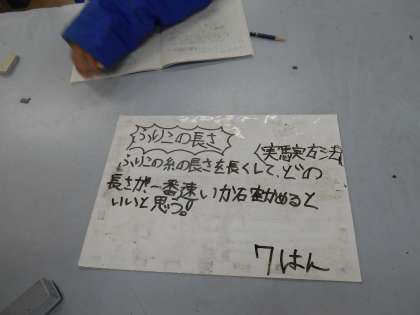 ふりこの長さ
(実験方法)
ふりこの糸の長さを長くして、どの
長さが、一番速いか確かめると
いいと思う!!
7はん